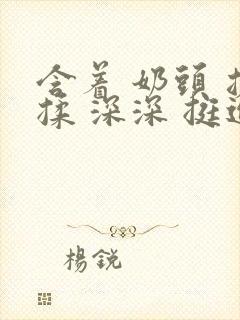 含着 奶頭 揉
揉 深深 挺进
楊銳